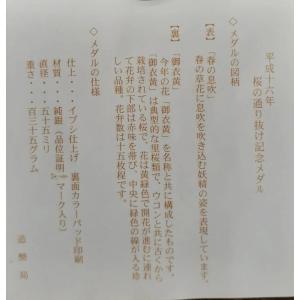 平成十六年
桜の通り抜け記念メダル
◇メダルの図柄
【表】「春の息吹」
春の草花に息吹を吹き込む妖精の姿を表現しています。
【裏】「御衣黄」
今年の花「御衣黄」を名称と共に構成したものです。
「御衣黄」は典型的な里桜類で、ウコンと共に古くから
栽培されている桜で、花は黄緑色で開花が進むに連れ
て花弁の下部は赤味を帯び、中央に緑色の線が入る珍
しい品種。花弁数は十五枚程です。
◇メダルの仕様
仕上・・・イブシ仕上げ 裏面カラーパッド印刷
材質・・・純銀(品位証明マーク入り)
直径・・・五十五ミリ
重さ・・・百三十五グラム
造幣局